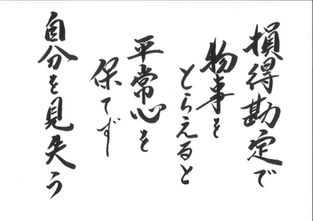 損得勘定で
物事を
とらえると
平常心を
保てず
自分を見失う